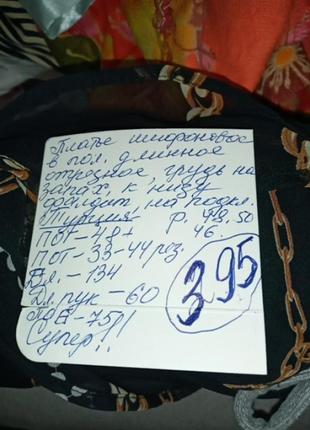 Платье шифоновое
в пол, длинное
отрезное, грудь на
запах, к низу
на подкл.
Турция р. 48,50
ПОГ-48+ 46.
ПОТ-33-44 рез.
Дл.-134
Дл. рук-60
ПОБ-75!
Супер!!
395